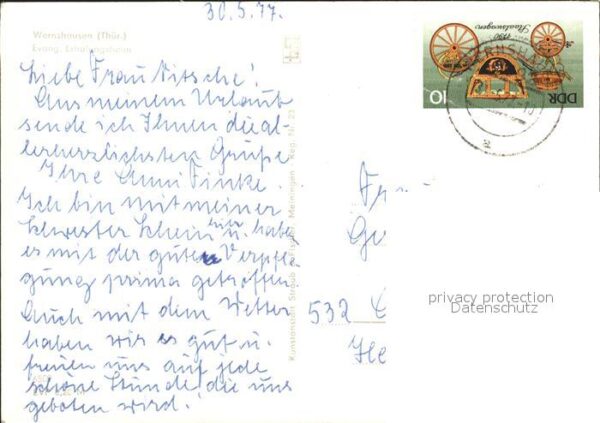 30.5.77.
Wernshausen (Thür.)
Evang. Erholungsheim
Liebe Frau Nitsche!
Aus meinem Urlaub
sende ich Ihnen die al-
lerherzlichsten Grüße
Ihre Anni Finke.
Ich bin mit meiner
Schwester hier u. haben
es mit der guten Verpfle
gung prima getroffen
Auch mit dem Wetter
haben wir es gut u.
freuen uns auf jede
schöne Stunde, die uns
geboten wird!
Reg. Nr.
Staatswagen
1790
10
DDR
Fr
Ge
532
He
privacy protection
Datenschutz